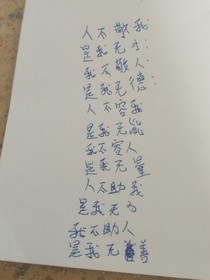 人不敬我
是我无才；
我不敬人
是我无德；
人不容我
是我无能
我不容人
是我无量
人不助我
是我无为
我不助人
是我无善